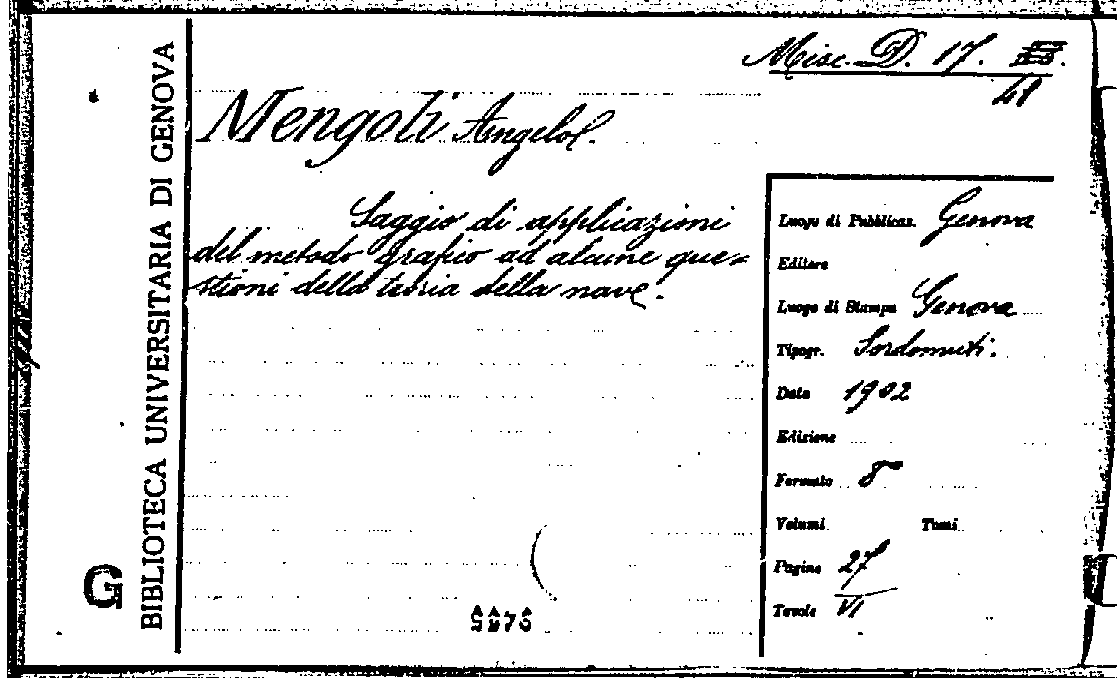 Misc. D. 17.
48
Mengoli Angelo.
Saggio di applicazioni
del metodo grafico ad alcune que=
stioni della teoria della nave.
Luogo di Pubblicaz. Genova
Editore
Luogo di Stampa Genova
Tipogr. Sordomuti.
Data 1902
Edizione
Formato 8º
Volumi Tomi
Pagine 27
Tavole VI
BIBLIOTECA UNIVERSITARIA DI GENOVA
G